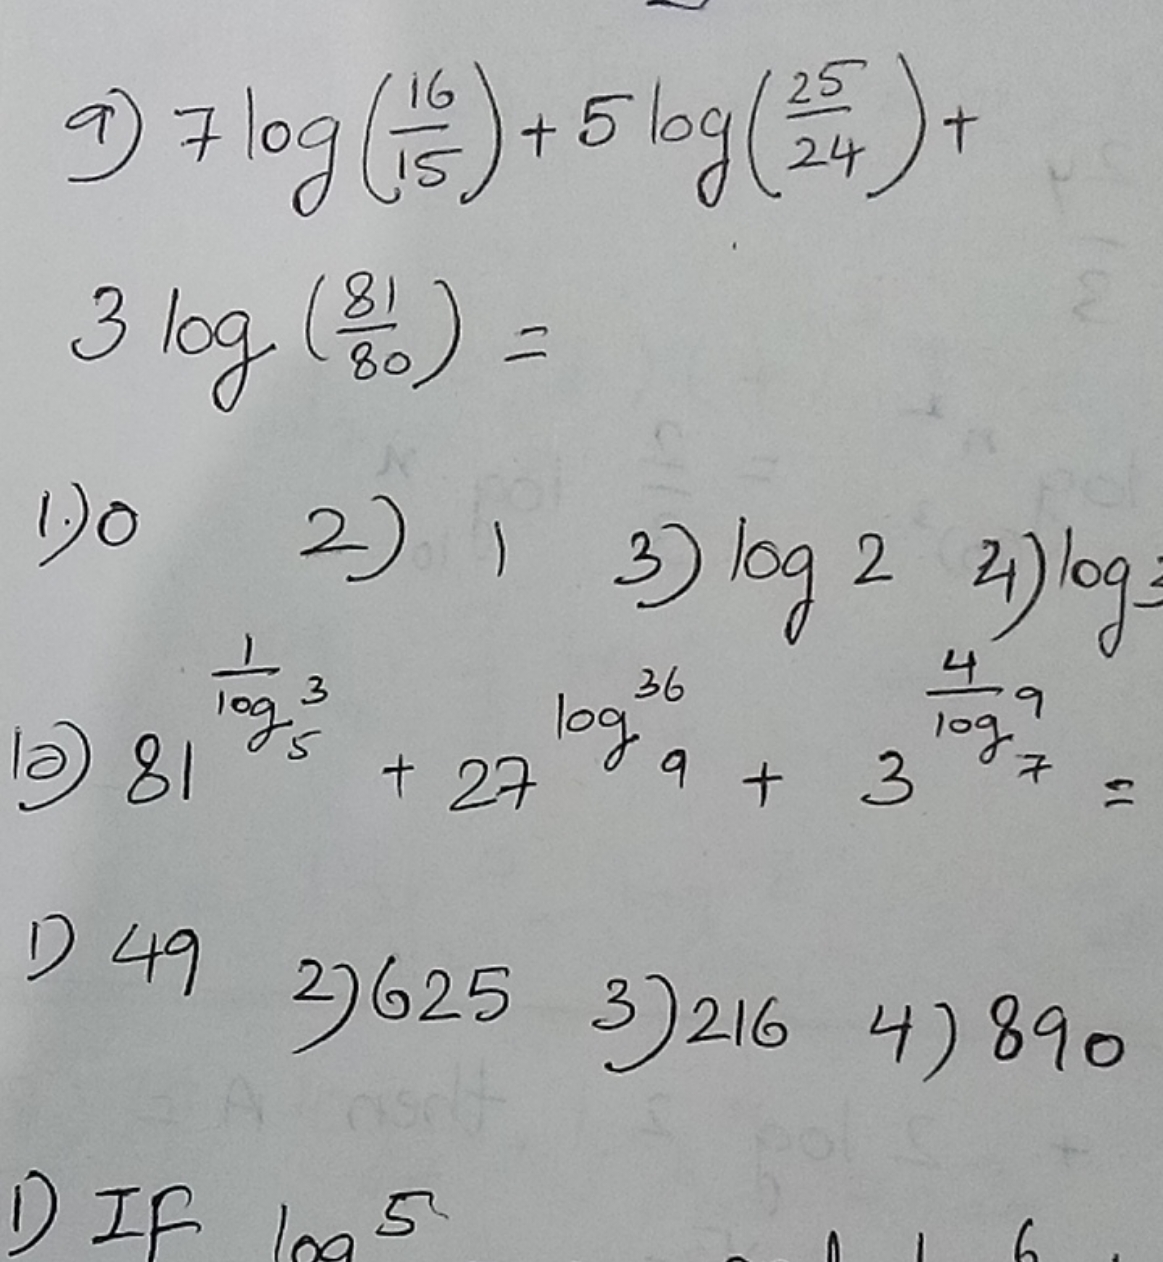 9) 7 log (16/15) + 5 log (25/24) +
3 log (81/80) =
1.) 0 2) 1 3) log 2 4) log 3
10) 81^(1/log_5 3) + 27^(log_9 36) + 3^(4/log_7 9) =
1) 49 2) 625 3) 216 4) 890
1) If log 5